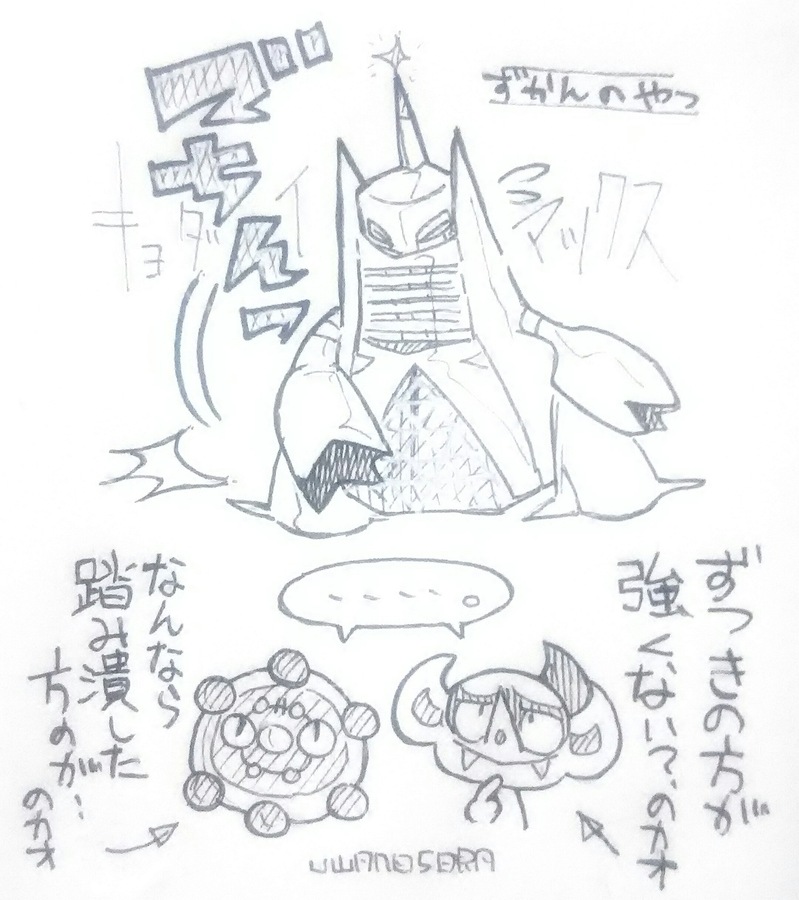 ずかんのやつ
キョダイマックス
、、、、。
ずつきの方が
強くない?のカオ
なんなら
踏み潰した
方のが…
のカオ
UWANOSORA